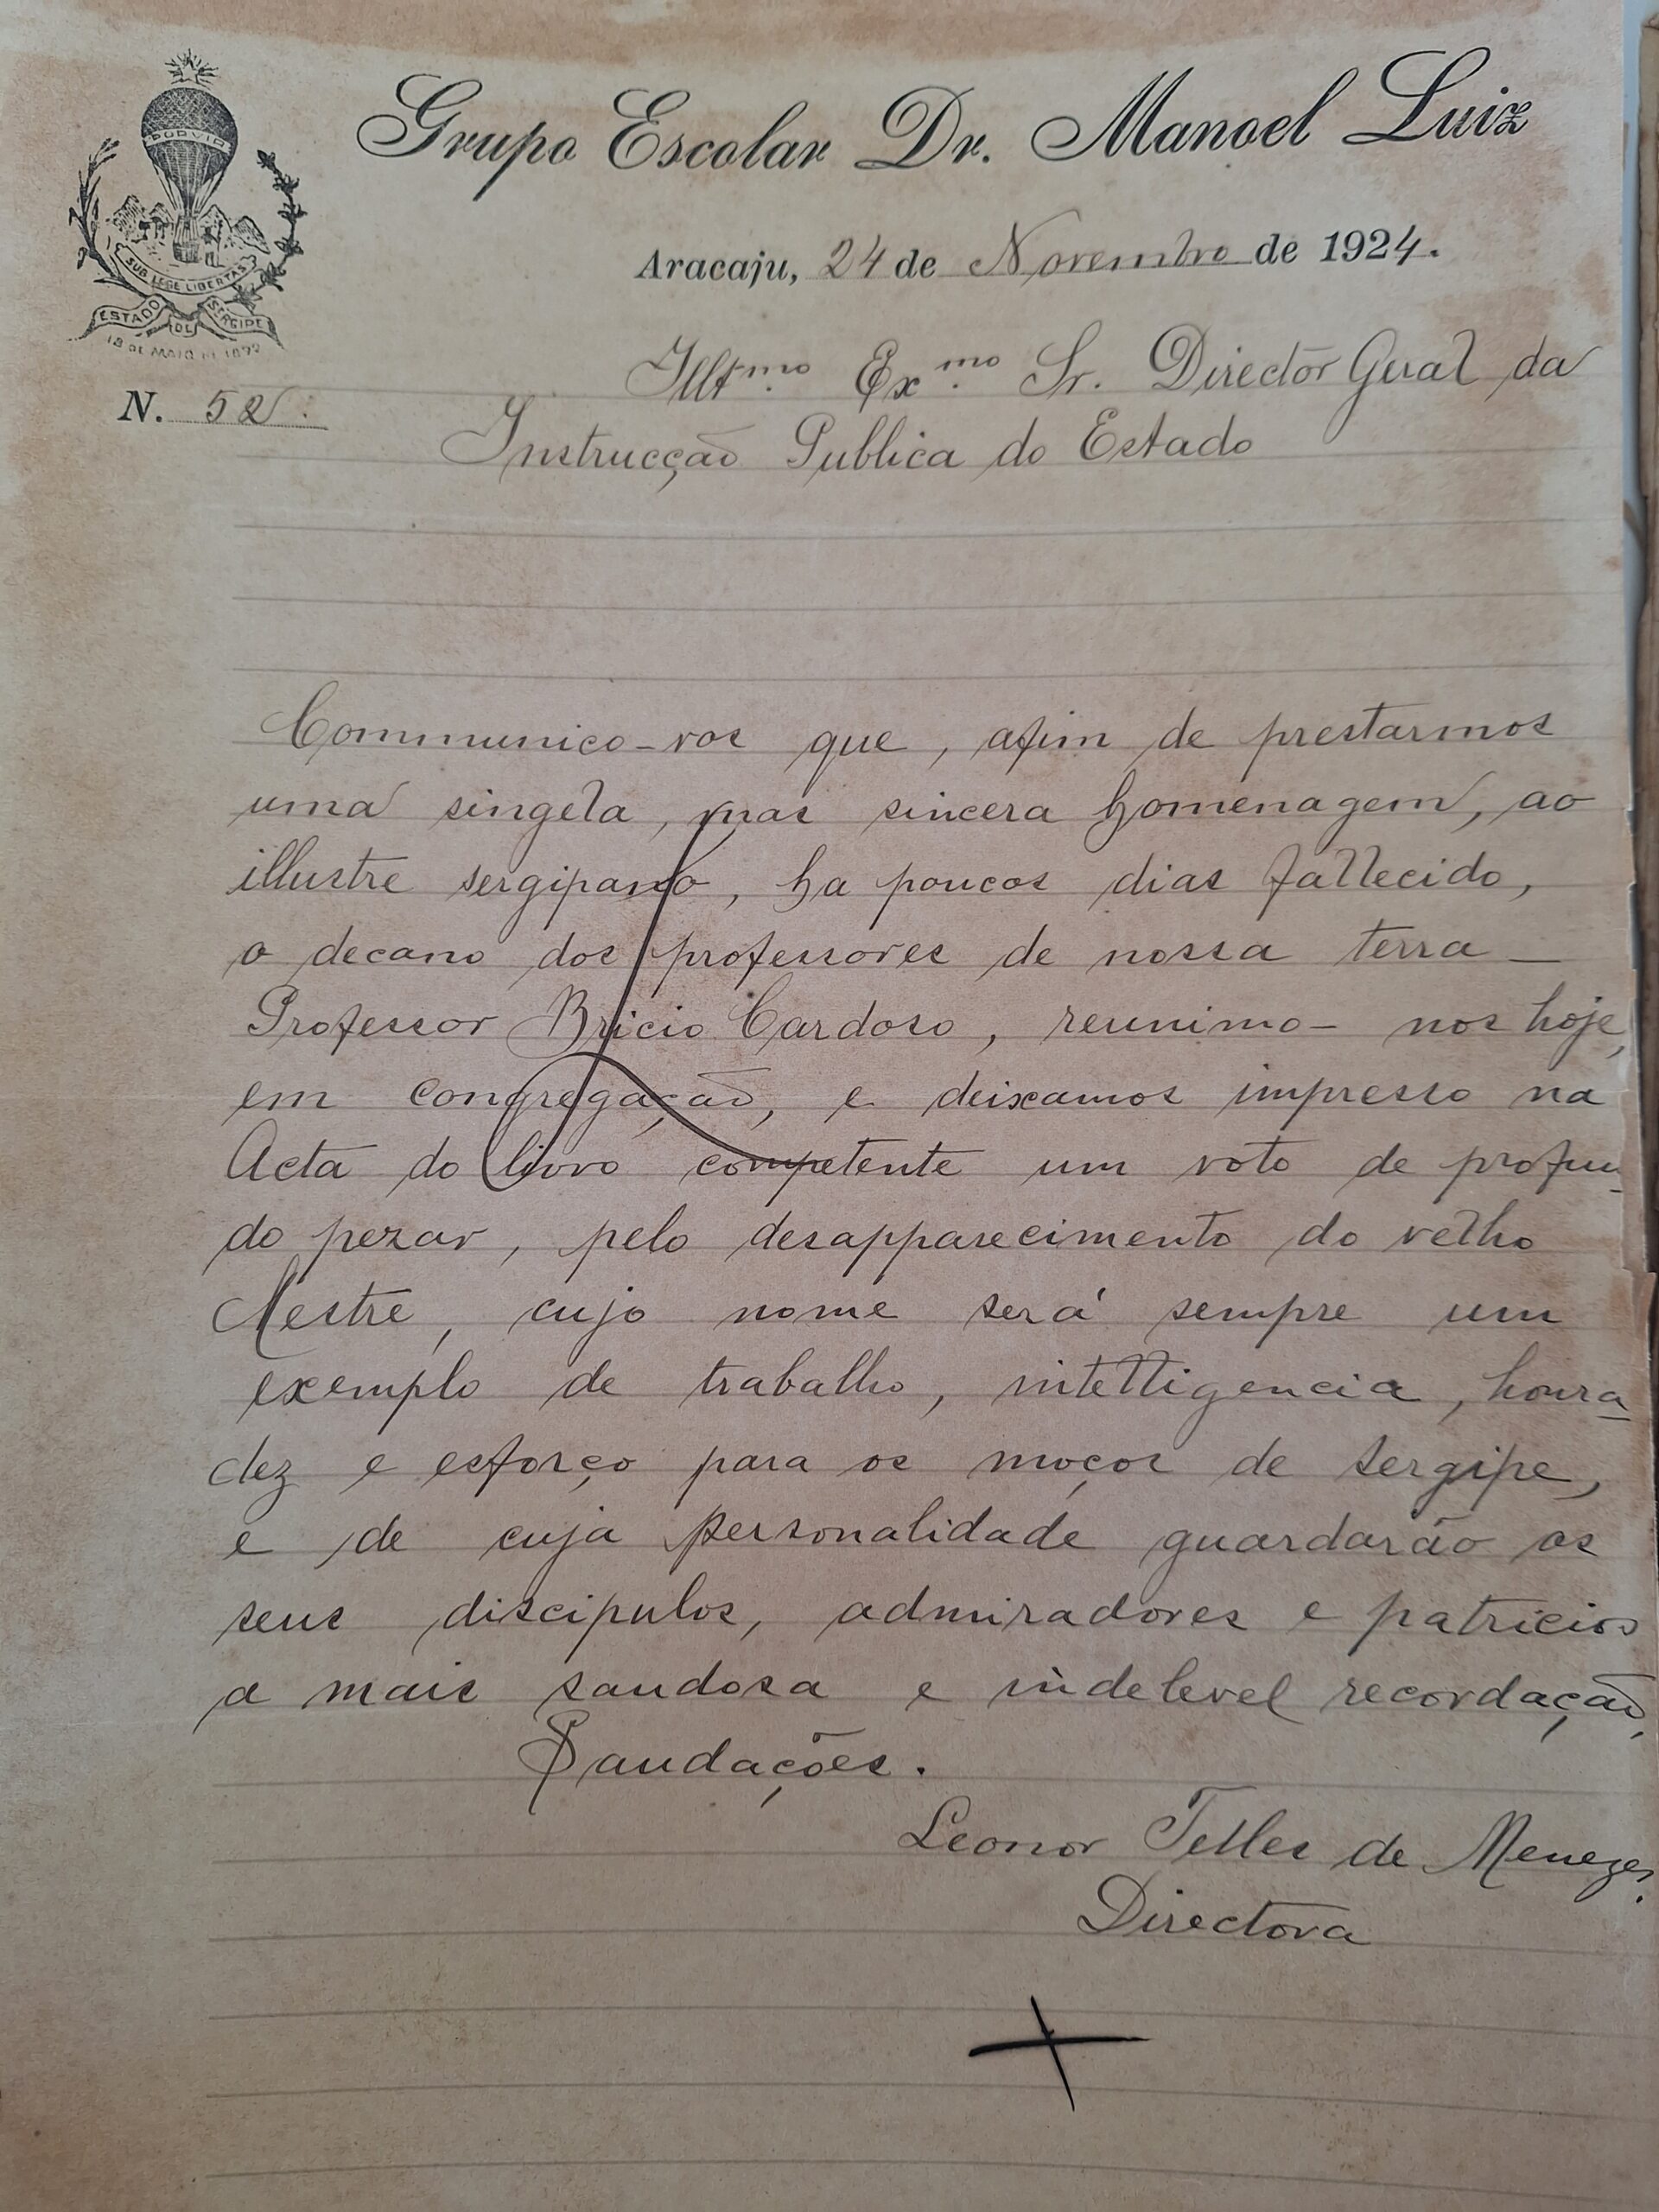 Grupo Escolar Dr. Manoel Luiz
PORVIR
SUB LEGE LIBERTAS
ESTADO DE SERGIPE
18 DE MAIO DE 1892
Aracaju, 24 de Novembro de 1924.
N. 52.
Illt.mo Ex.mo Sr. Director Geral da
Instrucção Publica do Estado
Communico-vos que, afim de prestarmos
uma singela, mas sincera homenagem, ao
illustre sergipano, ha poucos dias fallecido,
o decano dos professores de nossa terra —
Professor Bricio Cardoso, reunimo-nos hoje,
em congregação, e deixamos impresso na
Acta do livro competente um voto de profun-
do pezar, pelo desapparecimento do velho
Mestre, cujo nome será sempre um
exemplo de trabalho, intelligencia, honra-
dez e esforço para os moços de Sergipe,
e de cuja personalidade guardarão os
seus discipulos, admiradores e patricios
a mais saudosa e indelevel recordação.
Saudações.
Leonor Telles de Menezes.
Directora